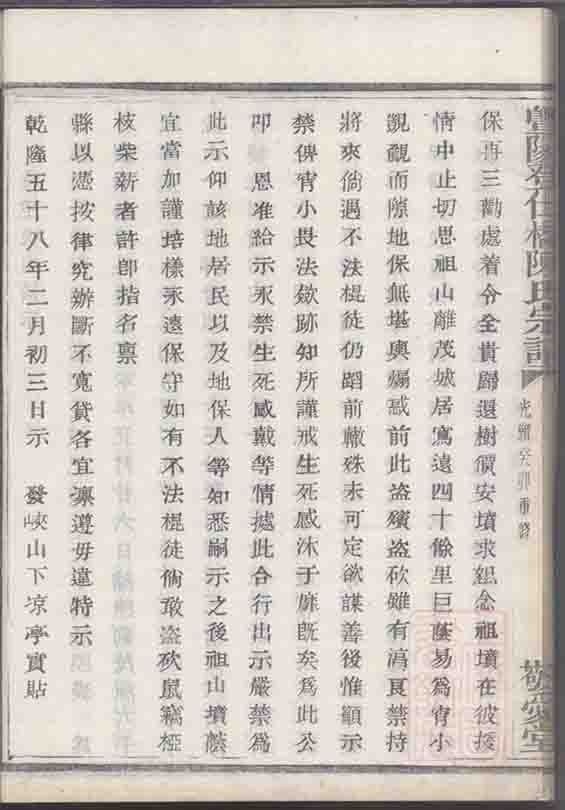 保再三勸處着令全貴歸還樹價安墳求恕念祖墳在彼接
情中止切思祖山離茂城居寫遠四十餘里巨蔭易爲宵小
覬覦而隙地保無堪輿煽惑前此盜殯盜砍雖有清艮禁持
將來倘遇不法棍徒仍蹈前轍殊未可定欲謀善後惟顧示
禁俾宵小畏法歛跡知所謹戒生死感沐于靡旣矣爲此公
叩 恩准給示永禁生死感戴等情據此合行出示嚴禁爲
此示仰該地居民以及地保人等知悉嗣示之後祖山墳蔭
宜當加謹培樣永遠保守如有不法棍徒倘敢盜砍鼠竊椏
核柴薪者許卽指名禀
縣以憑按律究辦斷不寬貸各宜凜遵毋違特示
乾隆五十八年二月初三日示 發峽山下凉亭實貼
陳氏宗譜
光緒癸卯重修
敬愛堂